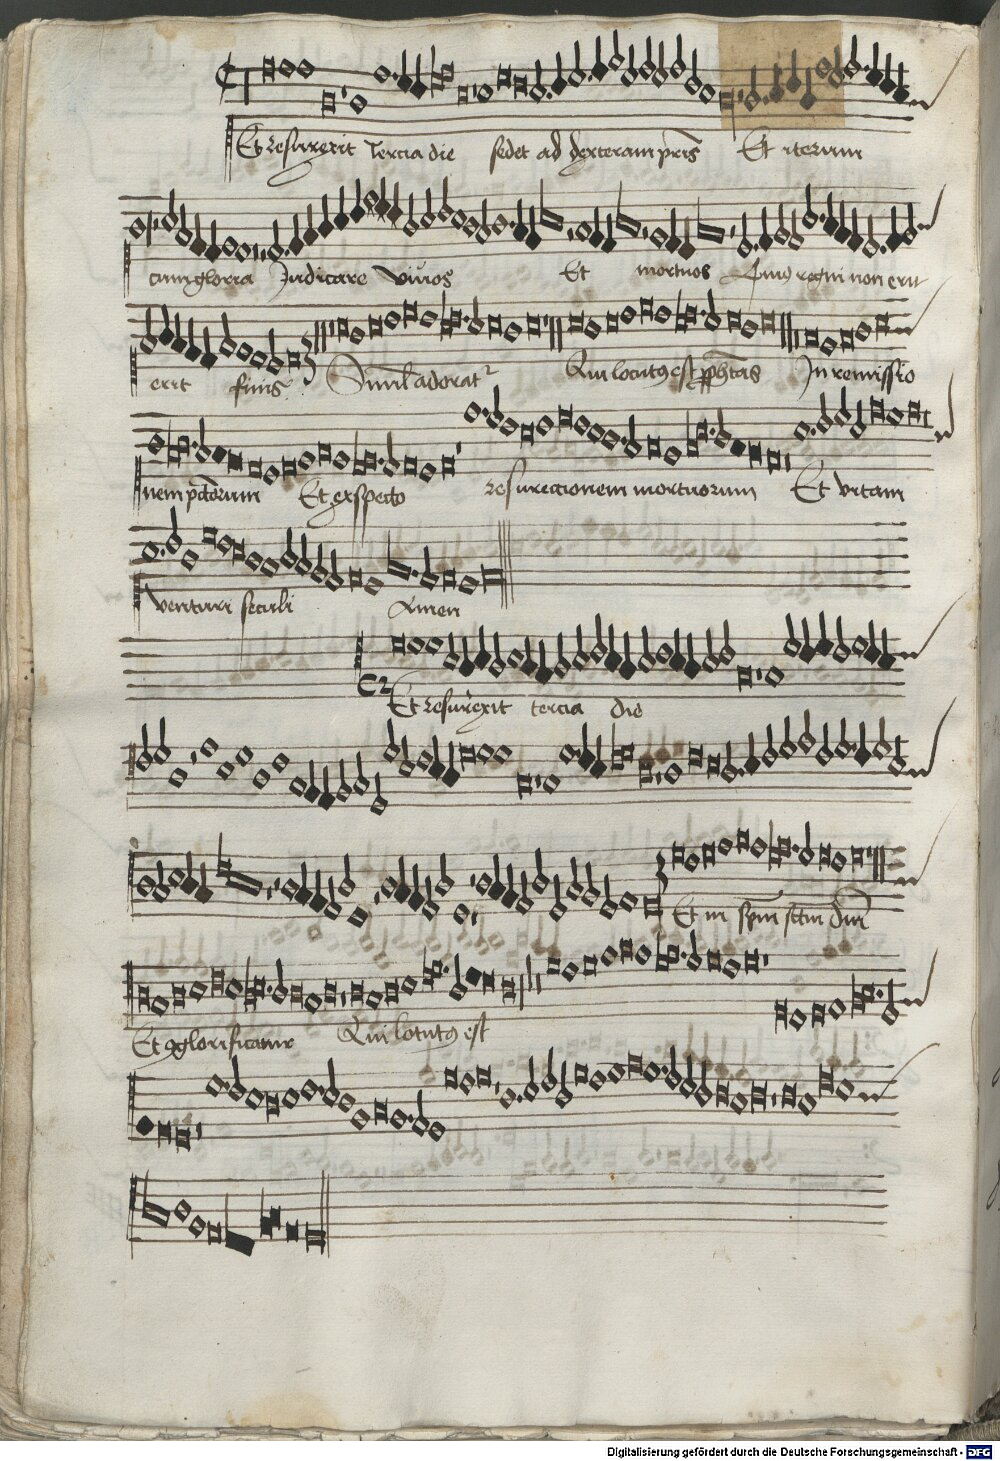 Et resurrexit tercia die sedet ad dexteram pris Et iterum
cum gloria Judicare vivos Et mortuos Cuius regni non erit
erit finis Simul adorat Qui locutus est prophetas In remissio
nem pctorum Et exspecto resurrectionem mortuorum Et vitam
venturi seculi Amen
Et resurrexit tercia die
Et in spm sctm dnm
Et glorificatur Qui locutus est
Digitalisierung gefördert durch die Deutsche Forschungsgemeinschaft - DFG